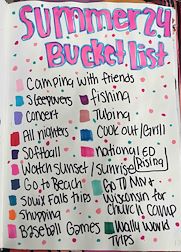 Summer 24
Bucket list
Camping with friends
Sleepovers fishing
Concert Tubing
All nighters Cook out/Grill
Softball National ED
Watch sunset/sunrise Rising
Go to Beach Go TO MN &
Sioux Falls trips Wisconsin for
Shopping Church Camp
Baseball Games Wally World
Trips